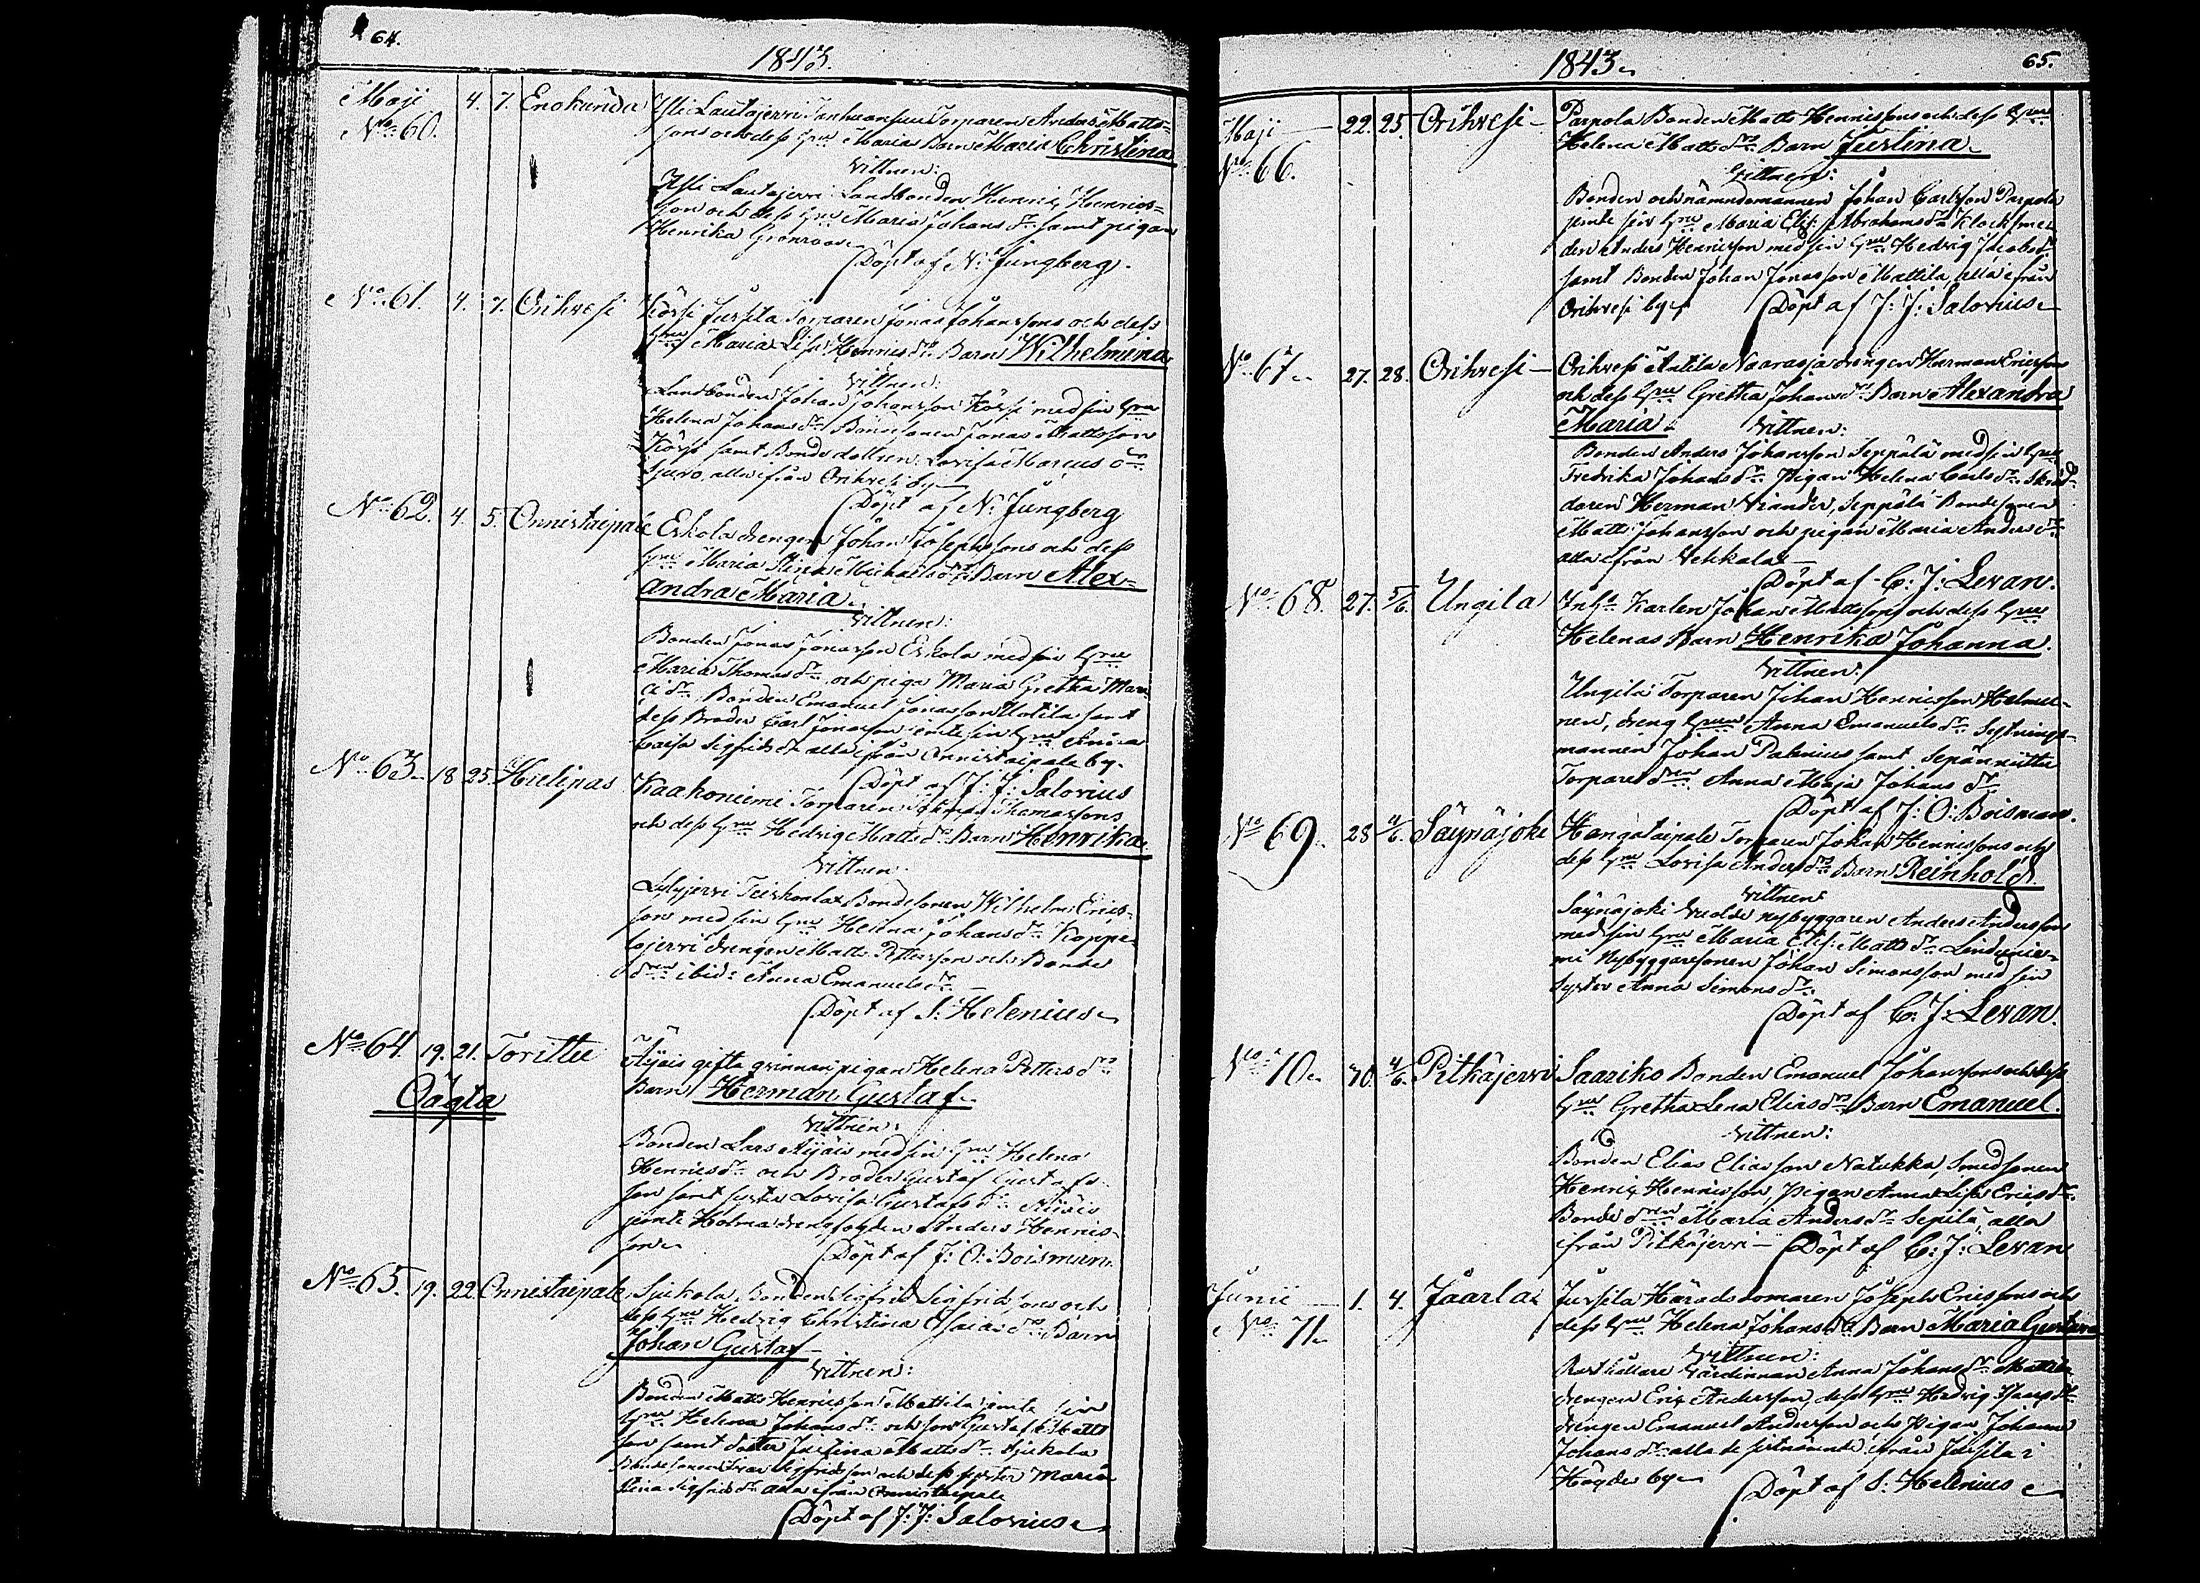 64.
1843.
Maji
No 60.
4. 7. Enokunda
Torparen Anders Matts=
sons och dess hru Maria Barn Maria Christina
Vittnen:
Landbonden Henric Henrics=
son och dess hru Maria Johans dr samt pigan
Henrika Grönroos
Döpt af N: Ljungberg.
No 61. 4. 7. Orihvesi
Körsi Jussila Torparen Jonas Johanssons och dess
hru Maria Lisa Henrics dr Barn Wilhelmina
Vittnen:
Landbonden Johan Johansson Körsi med sin hru
Helena Johans dr Bondesonen Jonas Mattsson
Körsi samt Bonde dottren Lovisa Marcus dr
alla ifrån Orihvesi by
Döpt af N. Ljungberg
No 62. 4. 5. Onnistaipale
Erkola drengen Johan Josephssons och dess
hru Maria Stina Michels dr Barn Alex=
andra Maria.
Vittnen:
Bonden Jonas Jonasson Erkola med sin hru
Maria Thomas dr och piga Maria Gretha
dr Bonden Emanuel Jonasson Uotila samt
dess Broder Carl Jonasson jemte sin hru Anna
Caisa Sigfrids dr alla ifrån Onnistaipale by.
Döpt af J: J: Salovius
No 63. 18 25. Hielipas
Kaakoniemi Torparen Thomassons
och dess hru Hedvig Matts dr Barn Henrika.
Vittnen
Lylyjervi Teiskonlax Bondesonen Wilhelm Erics=
son med sin hru Helena Johans dr Koppe=
lojervi drengen Matts Pettersson och Bonde
dren ibid: Anna Emanuels dr
Döpt af S: Helenius
No 64. 19. 21. Torittu
Oägta
Äijäis gifta qvinnan pigan Helena Petters dr
Barn Herman Gustaf.
Vittnen:
Bonden Lars Äijäis med sin hru Helena
Henrics dr och Broder Gustaf Gustafs=
son samt syster Lovisa Gustafs dr Äijäis
jemte Holma Anders Henrics=
son
Döpt af J: O: Boisman.
No 65. 19. 22. Onnistaipale
Sjukola Bonden Sigfrid Sigfridssons och
dess hru Hedvig Christina Esaias dr Barn
Johan Gustaf
Vittnen:
Bonden Matts Henricsson Mattila jemte sin
hru Helena Johans dr och son Gustaf Matts
son samt dotter Justina Matts dr Sjukola
Bondesonen Sigfridsson och dess syster Maria
Stina Sigfrids dr alla ifrån Onnistaipale
Döpt af J: J: Salovius
1843
65.
Maji
No 66.
22. 25. Orihvesi
Parpola Bonden Matts Henricssons och dess hru
Helena Matts dr Barn Justina
Vittnen:
Bonden och nämndemannen Johan Carlsson Parpola
jemte sin hru Maria Elis: Abrahams dr Klocksme=
den Anders Henricsson med sin hru Hedvig Jacobs dr
samt Bonden Johan Jonasson Mattila, alla ifrån
Orihvesi by
Döpt af J: J: Salovius
No 67 27. 28. Orihvesi
Orihvesi Antila Naarasja drengen Herman Ericsson
och dess hru Gretha Johans dr Barn Alexandra
Maria.
Vittnen:
Bonden Anders Johansson Seppälä med sin hru
Fredrika Johans dr Pigan Helena Carls dr Skräd=
daren Herman Viander, Seppälä Bondesonen
Matts Johansson och pigan Maria Anders dr
alla ifrån Vehkala
Döpt af C: J: Levan.
No 68. 27. 5/6. Ungila
Inhs Karlen Johan Mattssons och dess hru
Helenas Barn Henrika Johanna.
Vittnen:
Ungila Torparen Johan Henricsson Helmi=
nen, dreng hrun Anna Emanuels dr Sytnings=
mannen Johan Palenius samt Sepänniittu
Torpare dren Anna Maja Johans dr
Döpt af J: O: Boisman.
No 69. 28 4/6. Säynäjoki
Kangataipale Torparen Johan Henricssons och
dess hru Lovisa Anders dr Barn Reinhold.
Vittnen
Säynäjoki nybyggaren Anders Andersson
med sin hru Maria Elis: Matts dr Lindunie=
mi Nybyggaresonen Johan Simonsson med sin
syster Anna Simons dr
Döpt af C: J: Levan.
No 70. 30. 4/6. Pitkäjervi
Saariko Bonden Emanuel Johanssons och dess
hru Gretha Lena Elias dr Barn Emanuel.
Vittnen:
Bonden Elias Eliasson Natukka, Smedsonen
Henric Henricsson, Pigan Anna Lisa Erics dr
Bonde dren Maria Anders dr Sepilä, alla
ifrån Pitkäjervi
Döpt af C: J: Levan
Junii
No 71.
1. 4. Jåarla
Jussila Häradsdomaren Joseph Ericssons och
dess hru Helena Johans dr Barn Maria Gustava
Vittnen:
Rusthållare Värdinnan Anna Johans dr Mattila
drengen Eric Andersson, dess hru Hedvig Isaacs dr
drengen Emanuel Andersson och Pigan Johanna
Johans dr alla de sistnämnde ifrån Jussila i
by
Döpt af S: Helenius